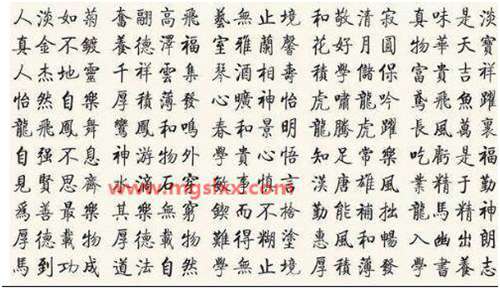 人淡如菊 奮翮高飛 藝無止境 和敬清寂 真味是淡
真金不鍍 養德澤福 室雅蘭馨 花好月圓 物華天寶
人杰地靈 千祥雲集 琴酒相壽 積學儲保 富貴吉祥
怡然自樂 厚積薄發 心曠神怡 虎嘯龍吟 鳶飛魚躍
龍飛鳳舞 鸞鳳和鳴 春和景明 龍騰虎躍 長風萬裏
自强不息 神游物外 學貴心悟 知足常樂 吃虧是福
見賢思齊 水滴石穿 敏事慎言 漢唐雄風 業精于勤
www.mgstxx.com
爲善最樂 其樂無窮 鍥而不捨 勤能補拙 龍馬精神
厚德載物 厚德載物 難得糊塗 惠風和暢 入幽出朗
馬到功成 道法自然 學無止境 厚積薄發 學書養志